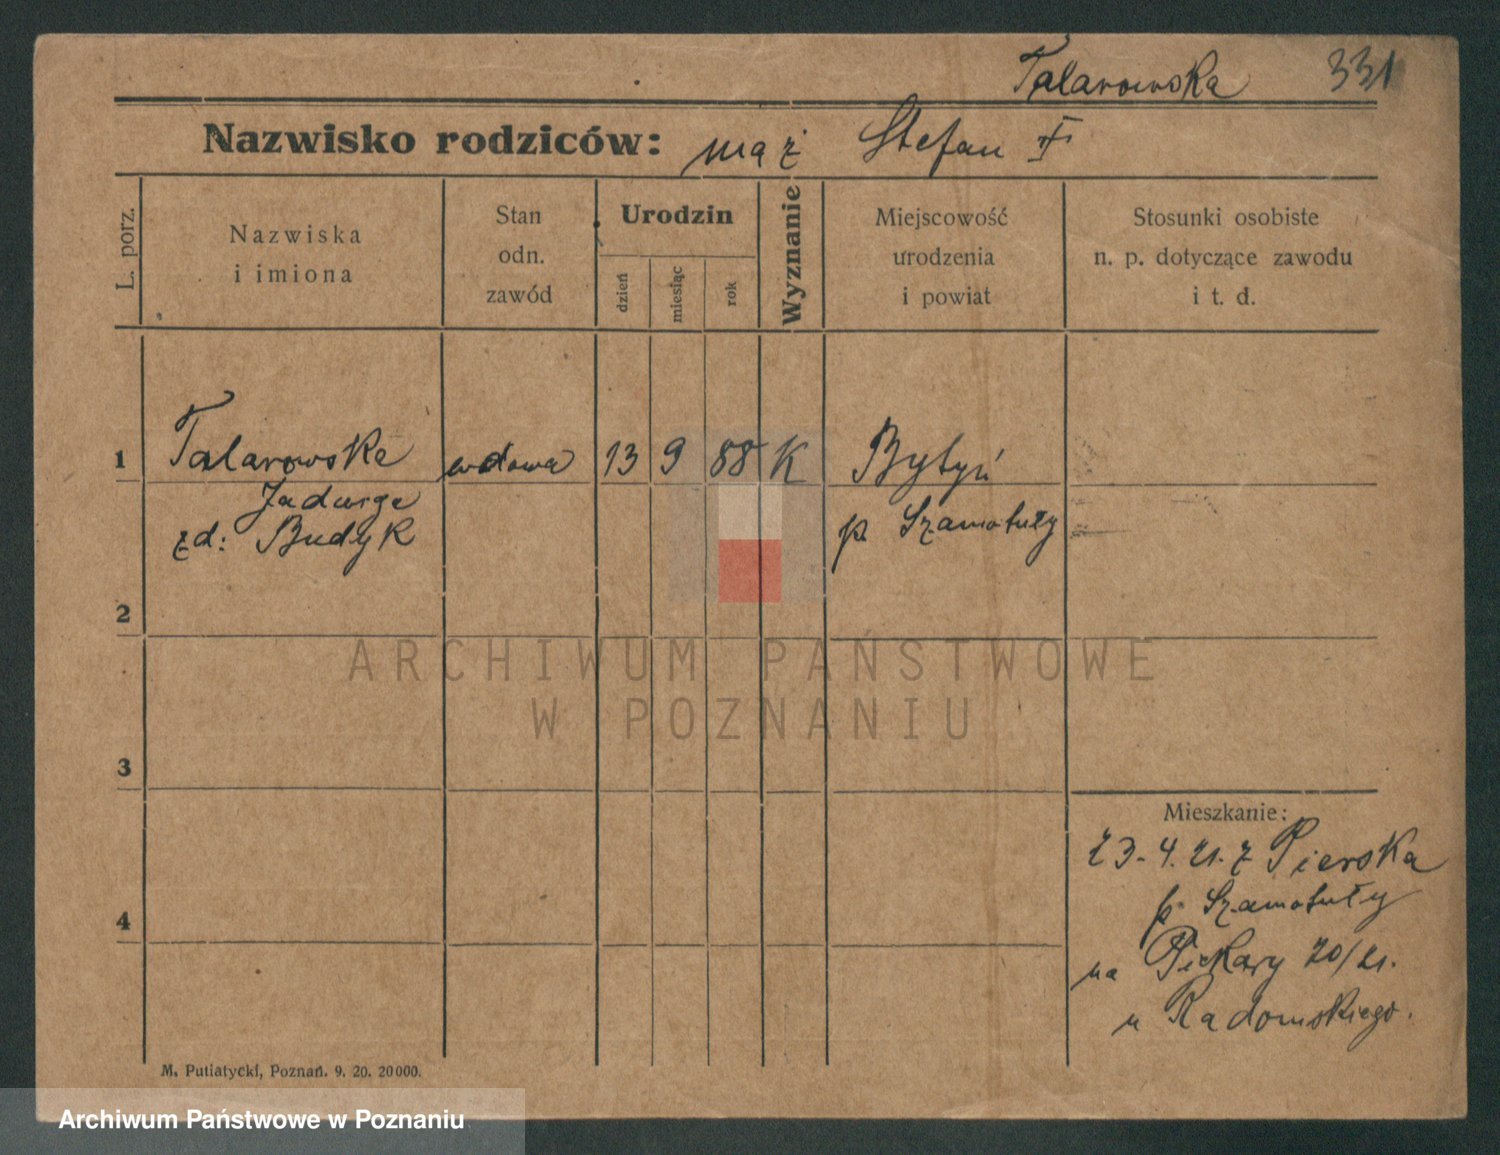 Talarowska 331
Nazwisko rodziców: mąż Stefan
L. porz.
Nazwiska
i imiona
Stan
odn.
zawód
Urodzin
dzień
miesiąc
rok
Wyznanie
Miejscowość
urodzenia
i powiat
Stosunki osobiste
n. p. dotyczące zawodu
i t. d.
1 Talarowska wdowa 13 9 88 K Bytyń
Jadwiga p. Szamotuły
zd: Budyk
2
3
4
Mieszkanie:
23-4.21. z Pierska
p. Szamotuły
na Piekary 20/21.
u Radomskiego.
M. Putiatycki, Poznań. 9. 20. 20000.
ARCHIWUM PAŃSTWOWE
W POZNANIU
Archiwum Państwowe w Poznaniu